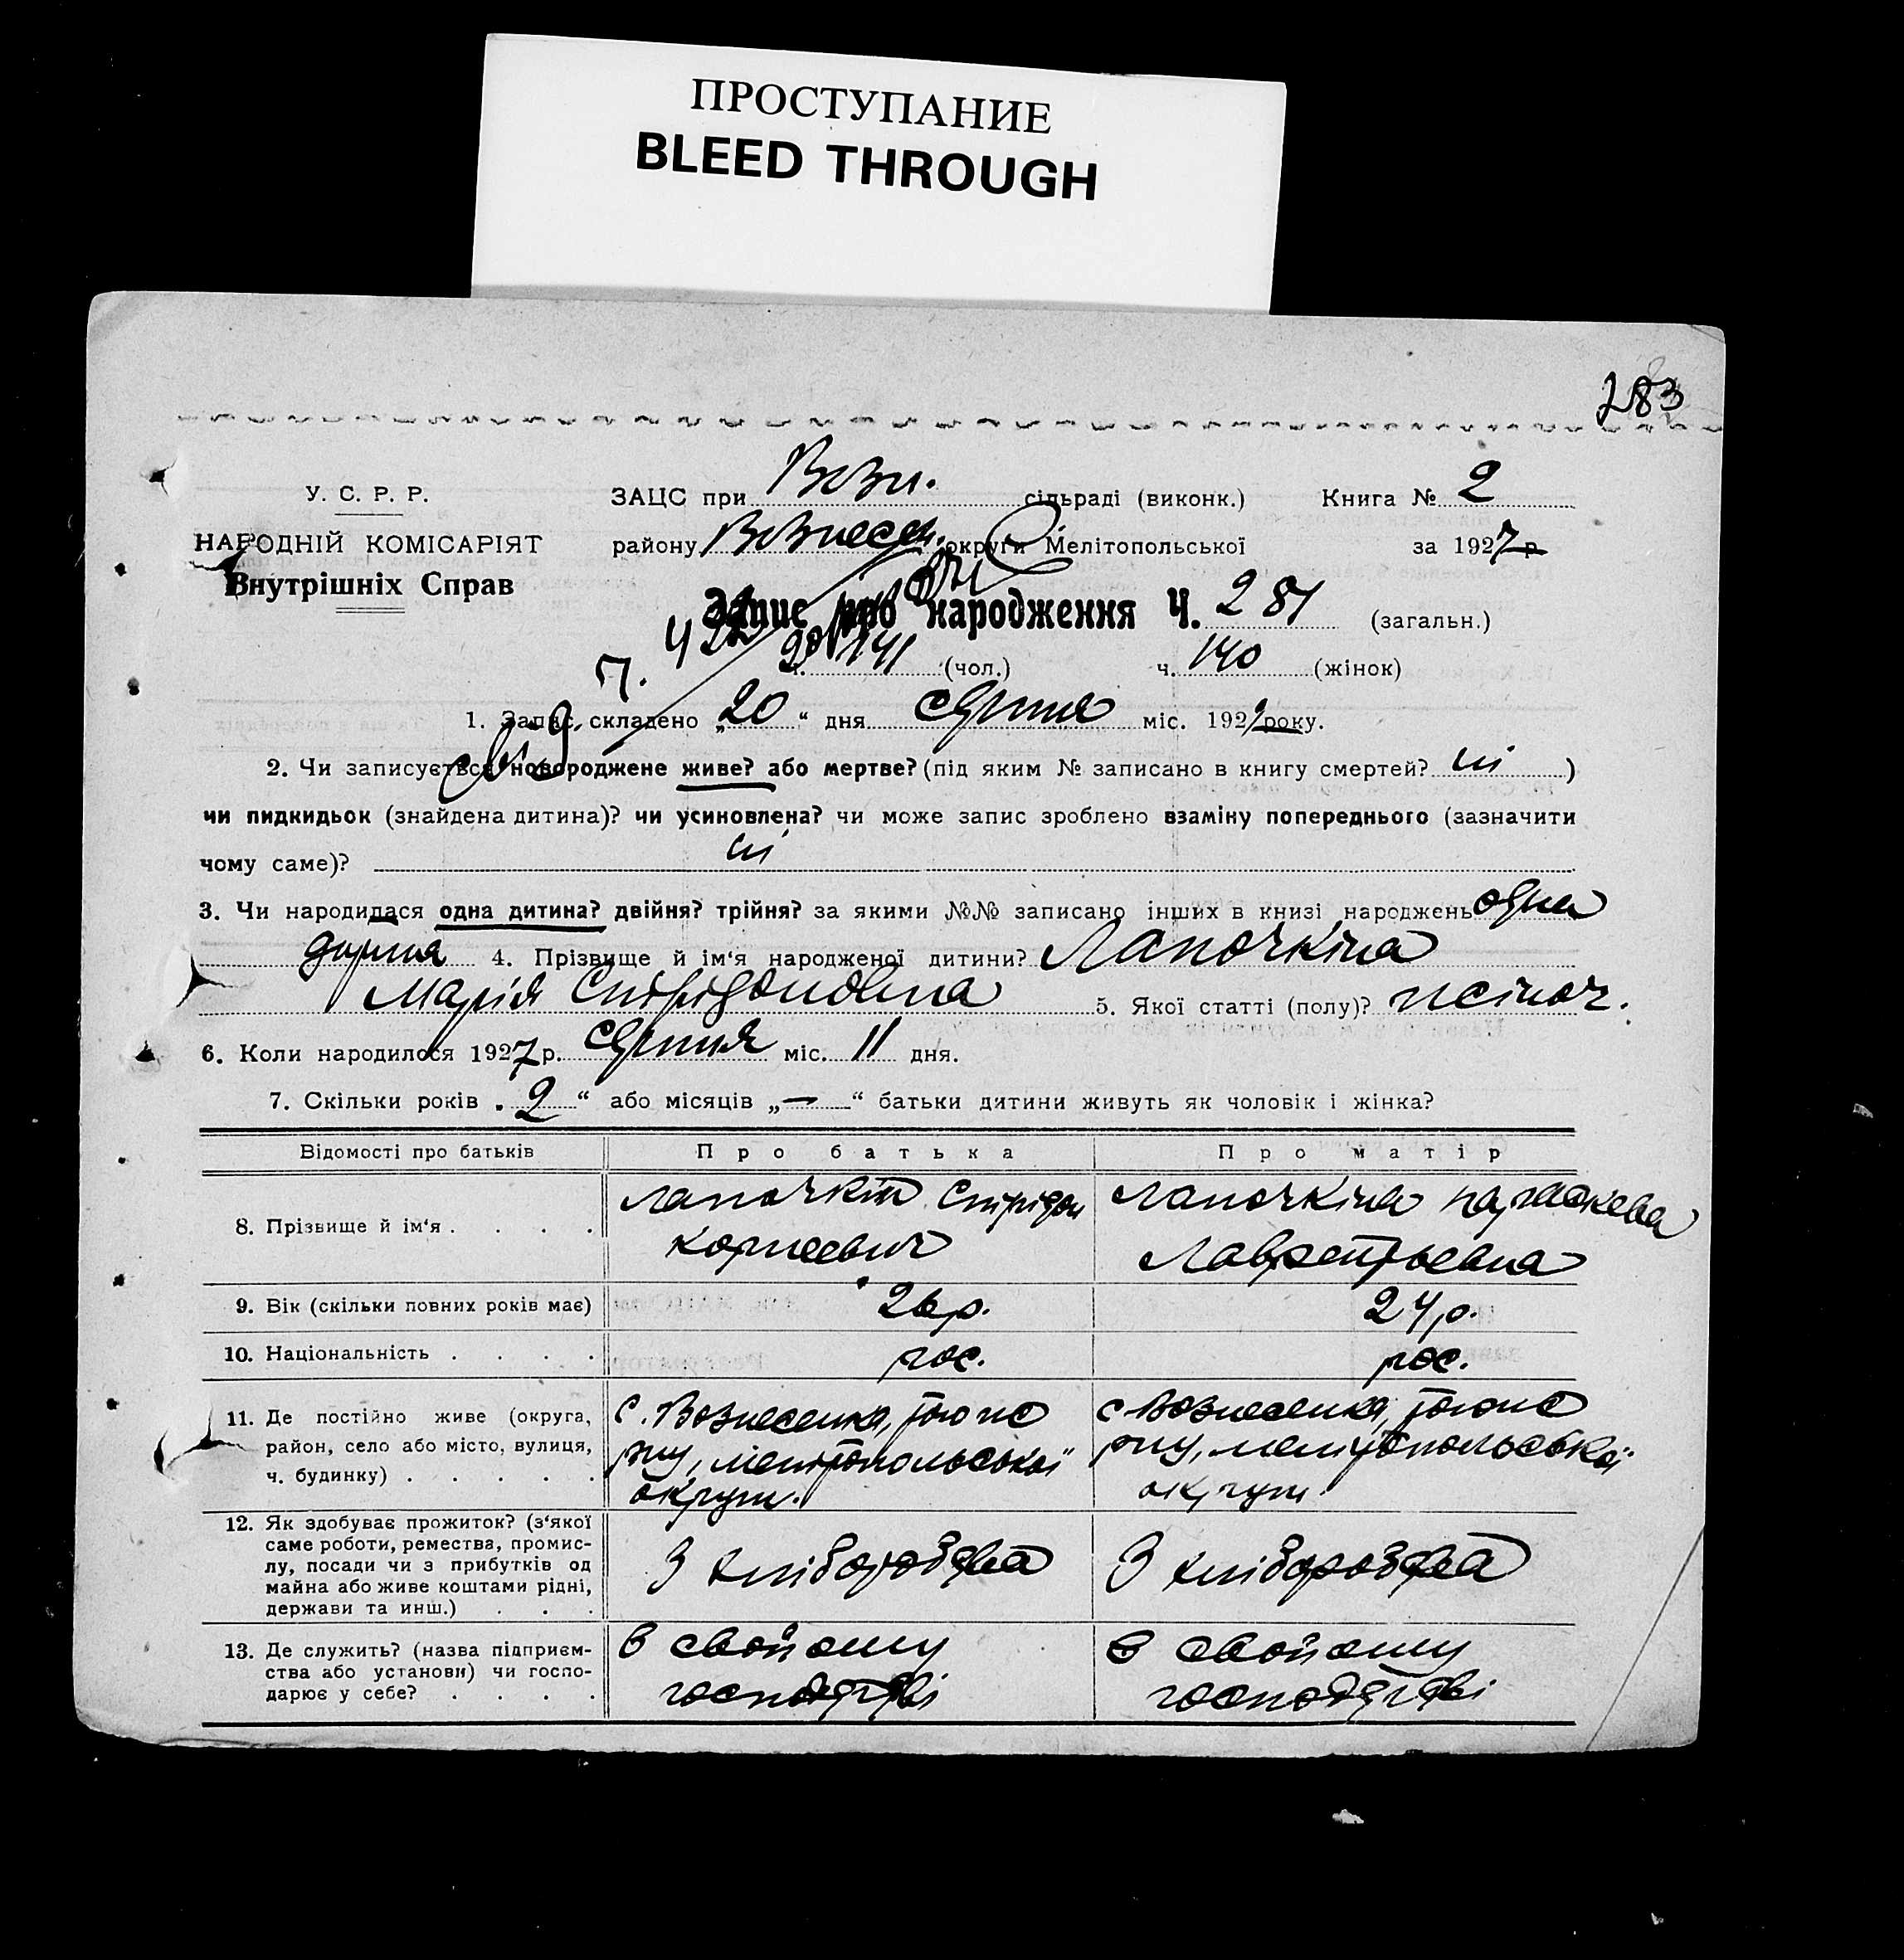 ПРОСТУПАНИЕ
BLEED THROUGH
283
У. С. Р. Р.
НАРОДНІЙ КОМІСАРІЯТ
Внутрішніх Справ
ЗАЦС при Возн. сільраді (виконк.) Книга № 2
району Вознесен. округи Мелітопольської за 1927 р.
Запис про народження Ч. 281 (загальн.)
ч. 141 (чол.) ч. 140 (жінок)
1. Запис складено „20“ дня серпня міс. 1927 року.
2. Чи записується новороджене живе? або мертве? (під яким № записано в книгу смертей? ні )
чи пидкидьок (знайдена дитина)? чи усиновлена? чи може запис зроблено взаміну попереднього (зазначити
чому саме)? ні
3. Чи народилася одна дитина? двійня? трійня? за якими №№ записано інших в книзі народжень одна
дитина 4. Прізвище й ім‘я народженої дитини? Лапочкіна
Марія Спірідоновна 5. Якої статті (полу)? жіноч.
6. Коли народилося 1927 р. серпня міс. 11 дня.
7. Скільки років „2“ або місяців „—“ батьки дитини живуть як чоловік і жінка?
Відомості про батьків Про батька Про матір
8. Прізвище й ім‘я . . . . Лапочкін Спірідон Корнеевич Лапочкіна Параскева Лаврентьевна
9. Вік (скільки повних років має) 26 р. 24 р.
10. Національність . . . . рос. рос.
11. Де постійно живе (округа,
район, село або місто, вулиця,
ч. будинку) . . . . .
с. Вознесенка, того ж
р-ну, Мелітопольської
округи.
с. Вознесенка, того ж
р-ну, Мелітопольської
округи
12. Як здобуває прожиток? (з‘якої
саме роботи, ремества, промис-
лу, посади чи з прибутків од
майна або живе коштами рідні,
держави та инш.) . . .
З хліборобства
З хліборобства
13. Де служить? (назва підприєм-
ства або установи) чи госпо-
дарює у себе? . . . .
в свойому
господарстві
в свойому
господарстві